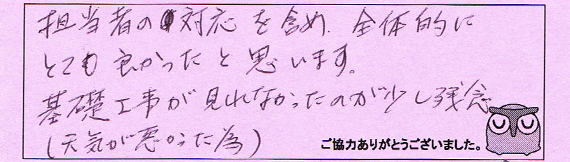 担当者の対応を含め、全体的に
とても良かったと思います。
基礎工事が見れなかったのが少し残念
(天気が悪かった為)
ご協力ありがとうございました。